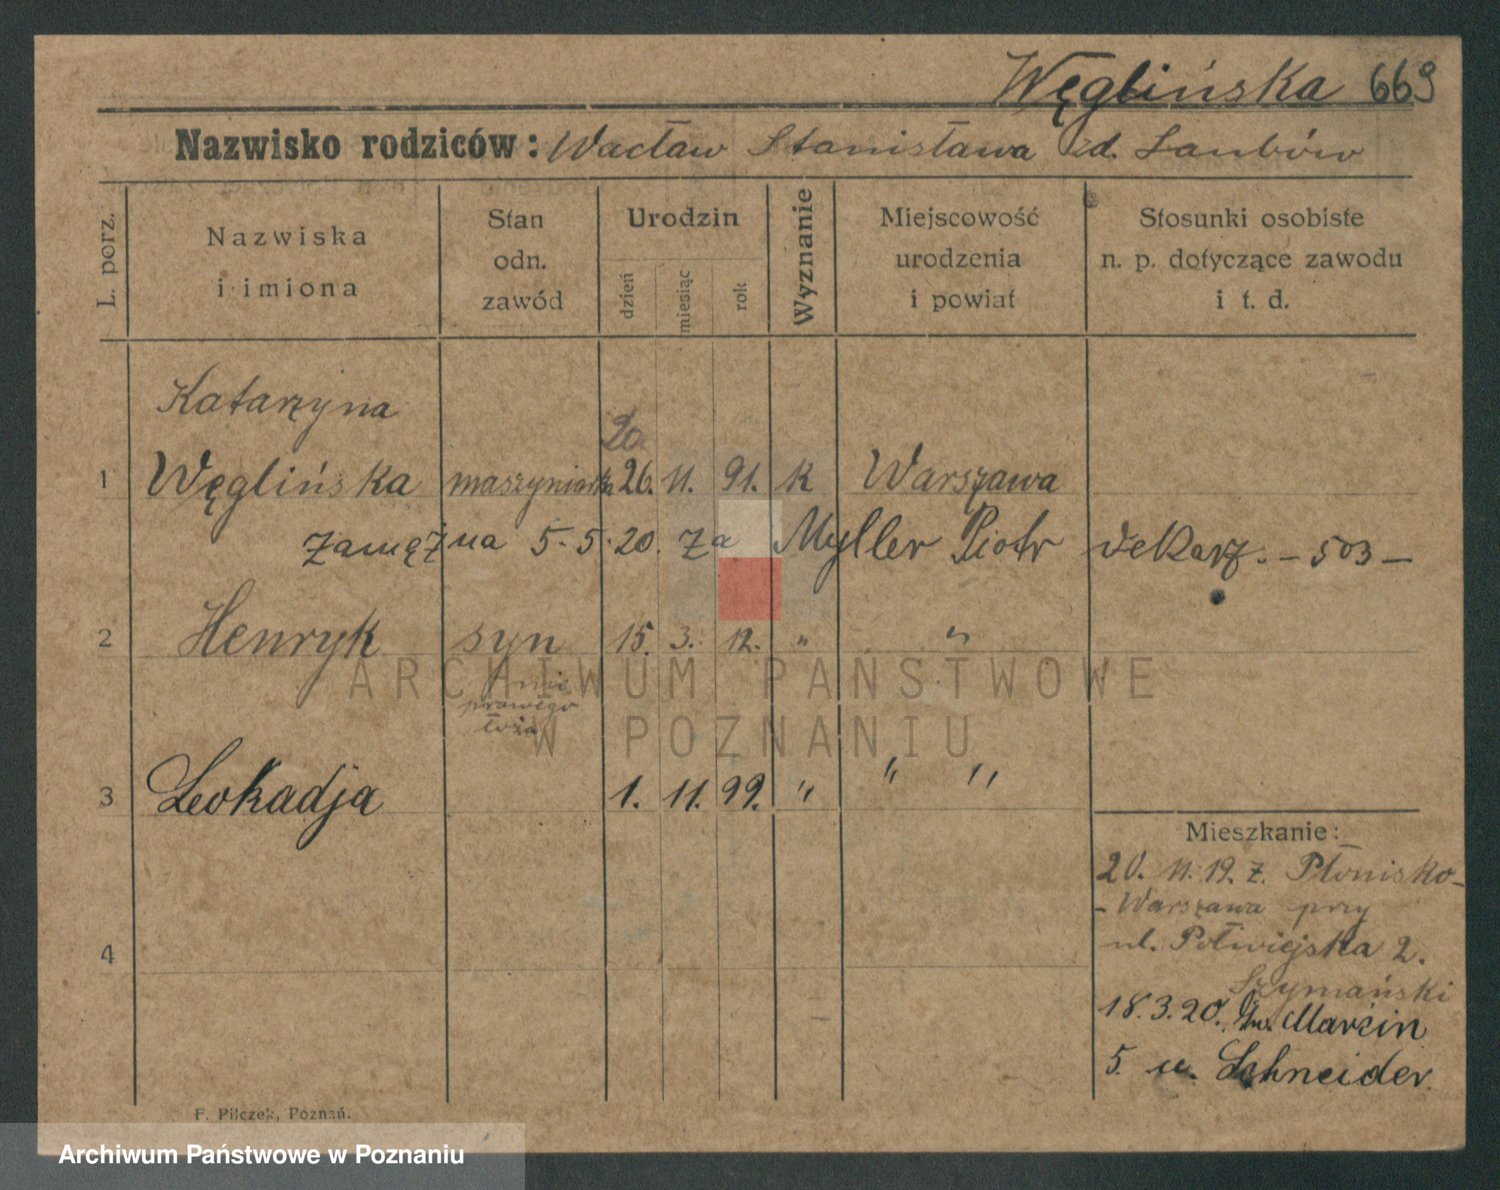 Węglińska 669
Nazwisko rodziców: Wacław Stanisława zd. Laubów
L. porz.
Nazwiska i imiona
Stan odn. zawód
Urodzin
dzień
miesiąc
rok
Wyznanie
Miejscowość urodzenia i powiat
Stosunki osobiste n. p. dotyczące zawodu i t. d.
Katarzyna
20
1 Węglińska maszyniarka 26. 11. 91. k Warszawa
zamężna 5.5.20. za Myller Piotr dekarz. - 503 -
2 Henryk syn 15. 3. 12. " "
prawego
łoża
3 Leokadja 1. 11. 99. " " "
Mieszkanie:
20. 11. 19. z. Płonisko-
- Warszawa przy
ul. Półwiejska 2.
Szymański
18.3.20. Św. Marcin
5. u. Schneider.
4
F. Pilczek, Poznań.
ARCHIWUM PAŃSTWOWE
W POZNANIU
Archiwum Państwowe w Poznaniu